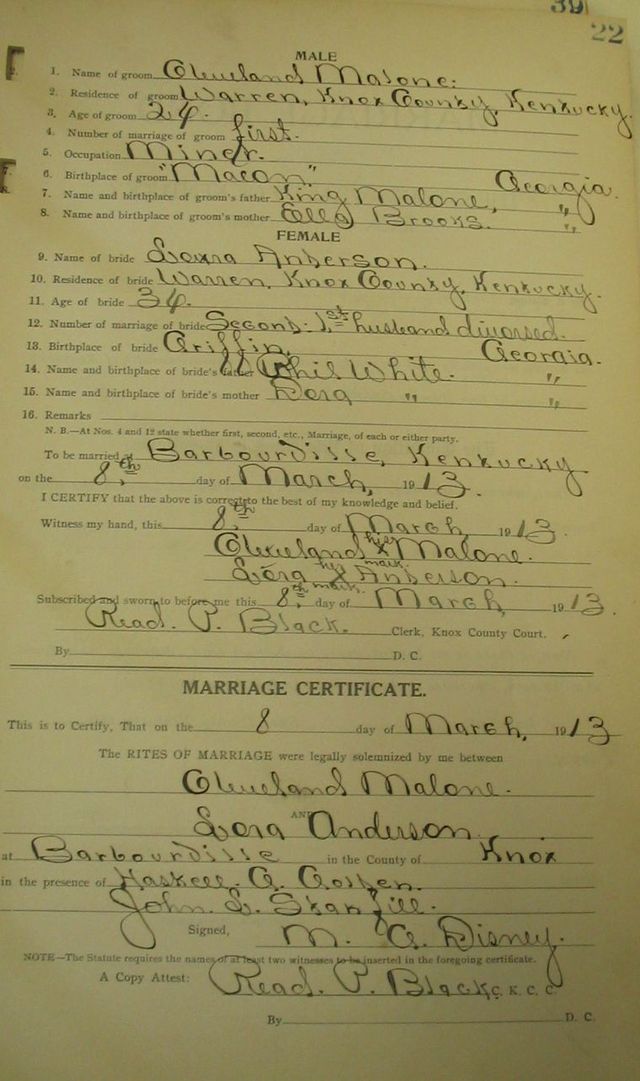 39
22
MALE
1. Name of groom Cleveland Malone.
2. Residence of groom Warren, Knox County, Kentucky.
3. Age of groom 24.
4. Number of marriage of groom first.
5. Occupation Miner.
6. Birthplace of groom "Macon" Georgia.
7. Name and birthplace of groom's father King Malone, "
8. Name and birthplace of groom's mother Ella Brooks. "
FEMALE
9. Name of bride Lora Anderson.
10. Residence of bride Warren, Knox County, Kentucky.
11. Age of bride 34.
12. Number of marriage of bride Second. 1st husband divorsed.
13. Birthplace of bride Griffin, Georgia.
14. Name and birthplace of bride's father Phil White. "
15. Name and birthplace of bride's mother Dora " "
16. Remarks
N. B.—At Nos. 4 and 12 state whether first, second, etc., Marriage, of each or either party.
To be married at Barbourville, Kentucky
on the 8th day of March, 1913.
I CERTIFY that the above is correct to the best of my knowledge and belief.
Witness my hand, this 8th day of March, 1913.
Cleveland his X mark Malone.
Lora her X mark Anderson.
Subscribed and sworn to before me this 8th day of March, 1913.
Read. P. Black. Clerk, Knox County Court.
By D. C.
MARRIAGE CERTIFICATE.
This is to Certify, That on the 8 day of March, 1913
The RITES OF MARRIAGE were legally solemnized by me between
Cleveland Malone.
AND
Lora Anderson.
at Barbourville in the County of Knox
in the presence of Haskell. G.
John. L. Stanfill.
Signed, M. G. Disney.
NOTE—The Statute requires the names of at least two witnesses to be inserted in the foregoing certificate.
A Copy Attest: Read. P. Black, C. K. C. C.
By D. C.